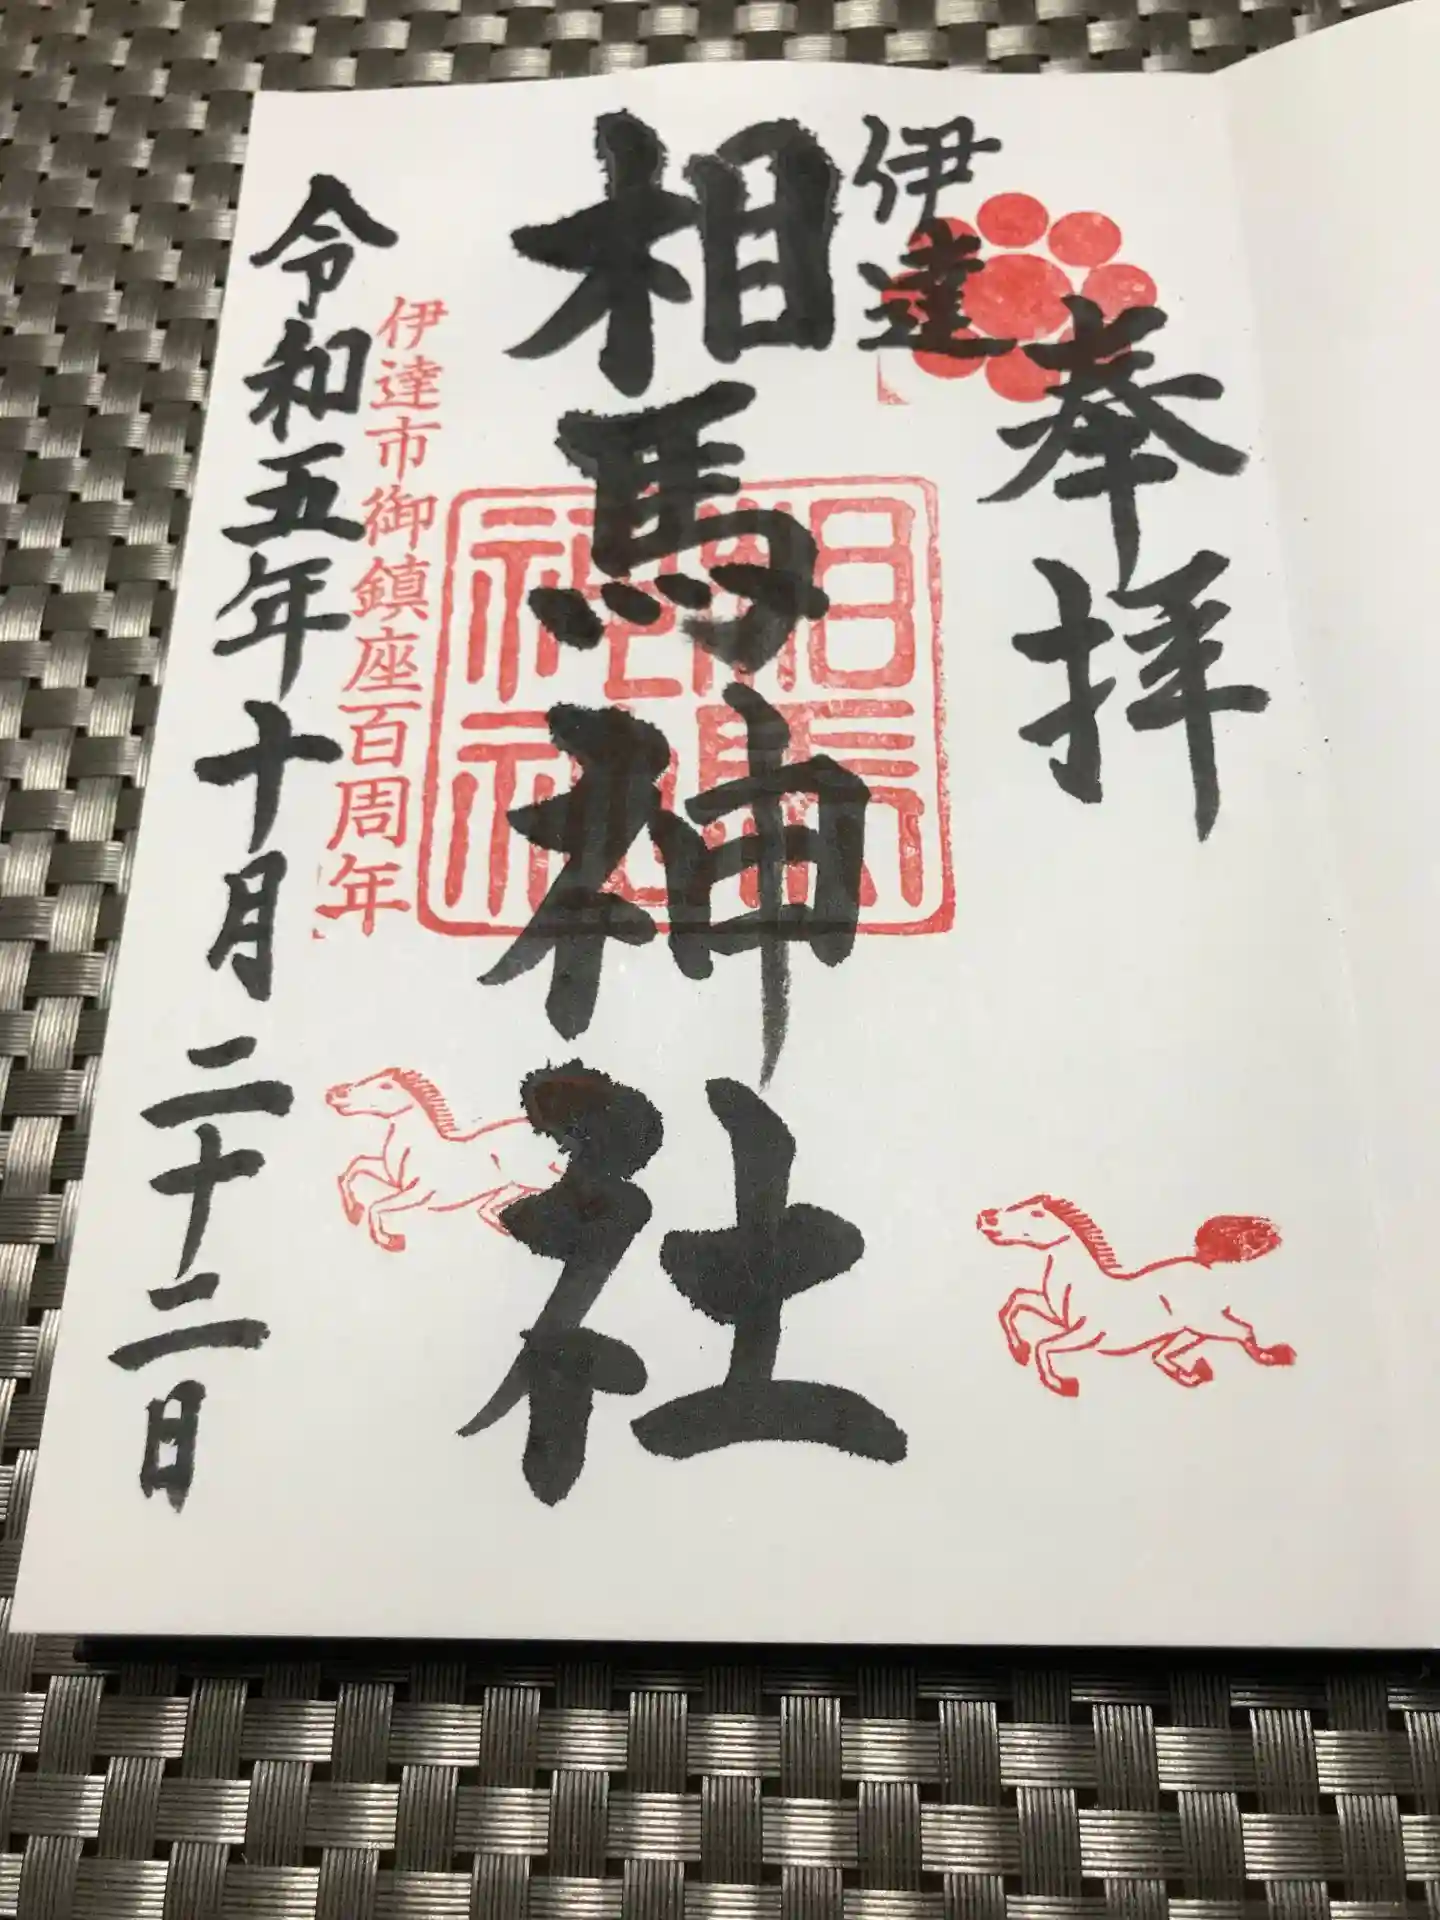 奉拝
伊達
相馬神社
相馬神社
伊達市御鎮座百周年
令和五年十月二十二日